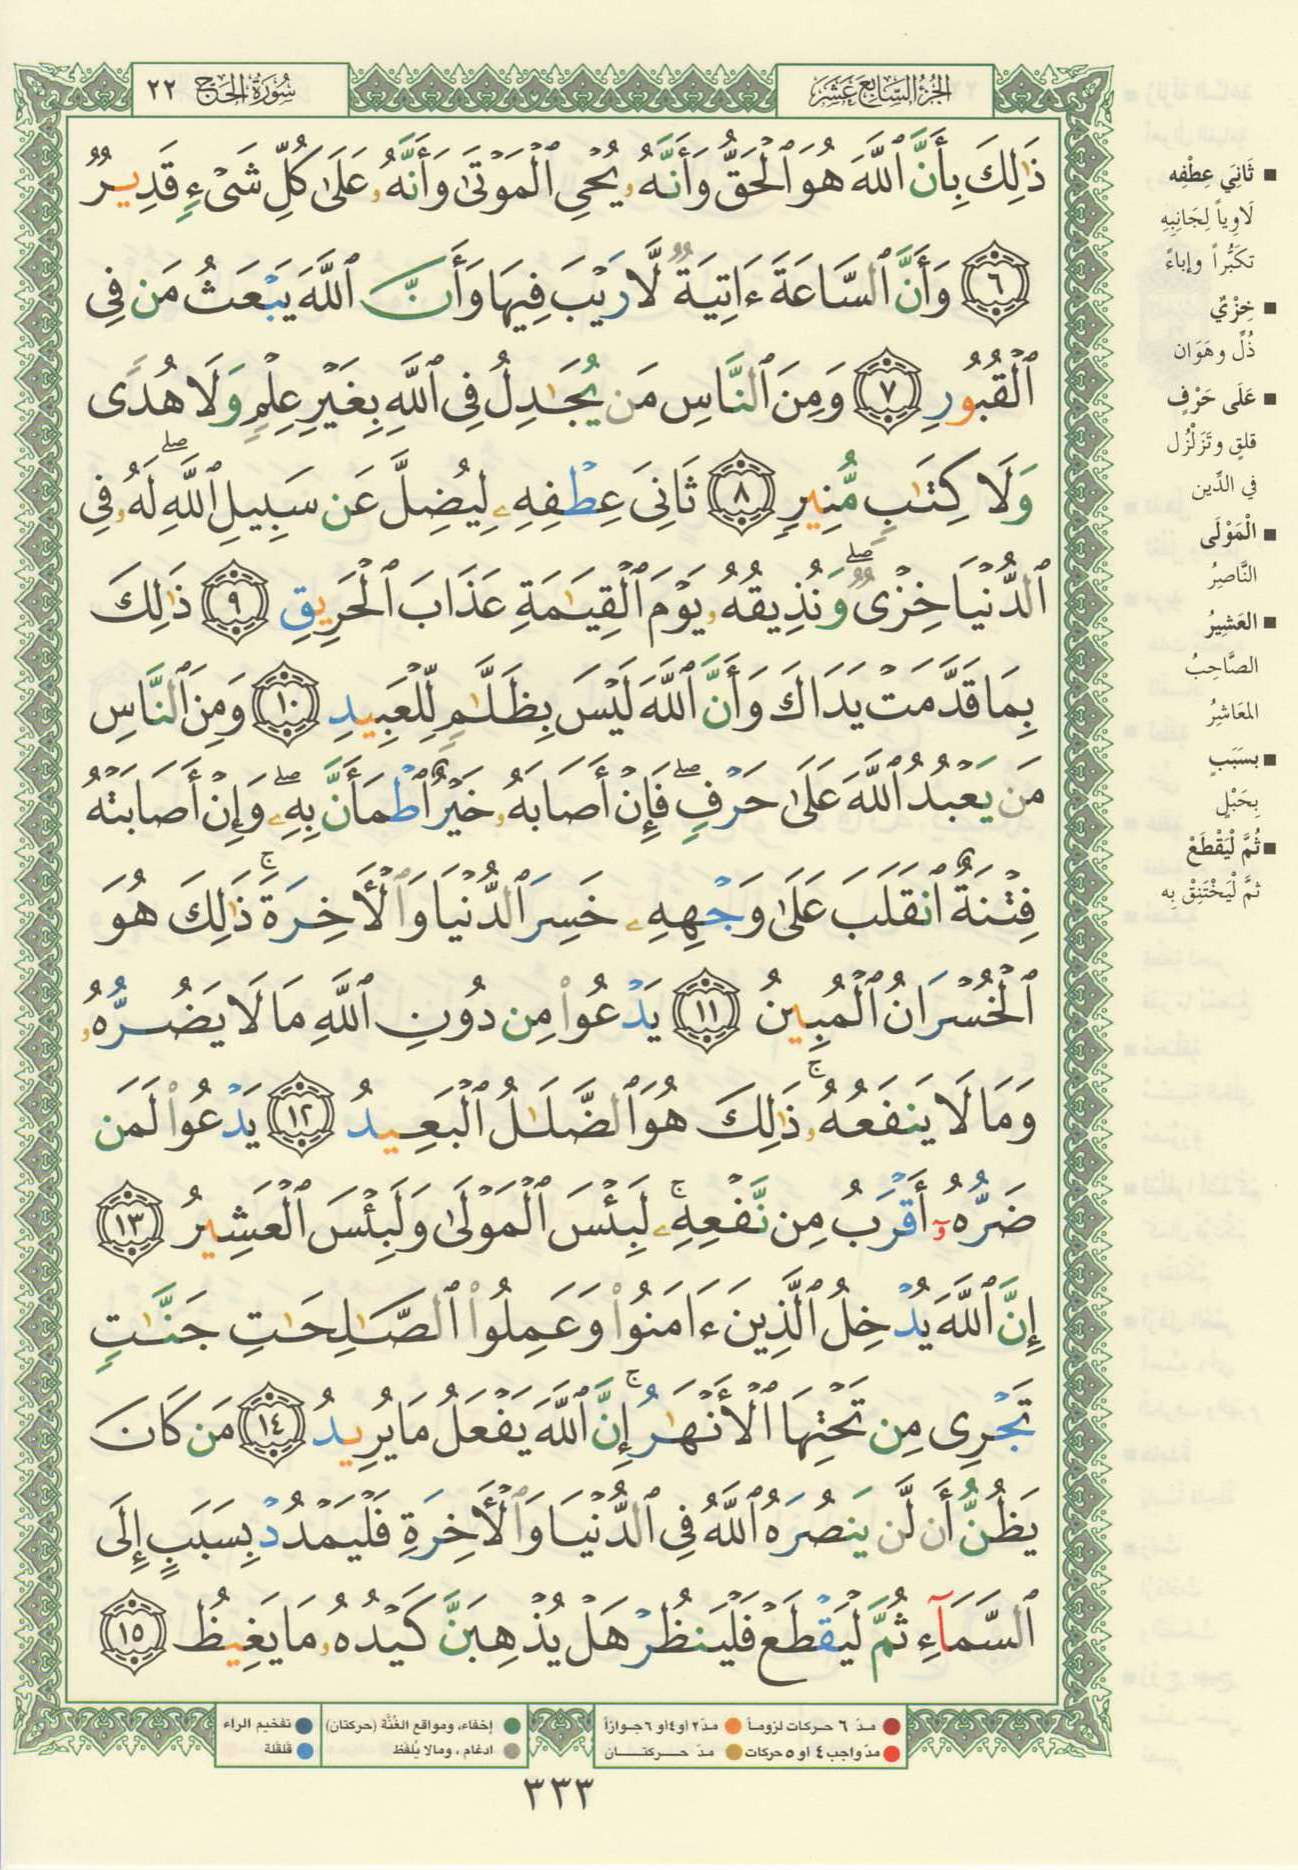 الجزء السابع عشر
سورة الحج ٢٢
ذَٰلِكَ بِأَنَّ ٱللَّهَ هُوَ ٱلْحَقُّ وَأَنَّهُۥ يُحْىِ ٱلْمَوْتَىٰ وَأَنَّهُۥ عَلَىٰ كُلِّ شَىْءٍ قَدِيرٌ
٦ وَأَنَّ ٱلسَّاعَةَ ءَاتِيَةٌ لَّا رَيْبَ فِيهَا وَأَنَّ ٱللَّهَ يَبْعَثُ مَن فِى
ٱلْقُبُورِ ٧ وَمِنَ ٱلنَّاسِ مَن يُجَٰدِلُ فِى ٱللَّهِ بِغَيْرِ عِلْمٍ وَلَا هُدًى
وَلَا كِتَٰبٍ مُّنِيرٍ ٨ ثَانِىَ عِطْفِهِۦ لِيُضِلَّ عَن سَبِيلِ ٱللَّهِ ۖ لَهُۥ فِى
ٱلدُّنْيَا خِزْىٌ ۖ وَنُذِيقُهُۥ يَوْمَ ٱلْقِيَٰمَةِ عَذَابَ ٱلْحَرِيقِ ٩ ذَٰلِكَ
بِمَا قَدَّمَتْ يَدَاكَ وَأَنَّ ٱللَّهَ لَيْسَ بِظَلَّٰمٍ لِّلْعَبِيدِ ١٠ وَمِنَ ٱلنَّاسِ
مَن يَعْبُدُ ٱللَّهَ عَلَىٰ حَرْفٍ ۖ فَإِنْ أَصَابَهُۥ خَيْرٌ ٱطْمَأَنَّ بِهِۦ ۖ وَإِنْ أَصَابَتْهُ
فِتْنَةٌ ٱنقَلَبَ عَلَىٰ وَجْهِهِۦ خَسِرَ ٱلدُّنْيَا وَٱلْأَخِرَةَ ۚ ذَٰلِكَ هُوَ
ٱلْخُسْرَانُ ٱلْمُبِينُ ١١ يَدْعُوا۟ مِن دُونِ ٱللَّهِ مَا لَا يَضُرُّهُۥ
وَمَا لَا يَنفَعُهُۥ ۚ ذَٰلِكَ هُوَ ٱلضَّلَٰلُ ٱلْبَعِيدُ ١٢ يَدْعُوا۟ لَمَن
ضَرُّهُۥٓ أَقْرَبُ مِن نَّفْعِهِۦ ۚ لَبِئْسَ ٱلْمَوْلَىٰ وَلَبِئْسَ ٱلْعَشِيرُ ١٣
إِنَّ ٱللَّهَ يُدْخِلُ ٱلَّذِينَ ءَامَنُوا۟ وَعَمِلُوا۟ ٱلصَّٰلِحَٰتِ جَنَّٰتٍ
تَجْرِى مِن تَحْتِهَا ٱلْأَنْهَٰرُ ۚ إِنَّ ٱللَّهَ يَفْعَلُ مَا يُرِيدُ ١٤ مَن كَانَ
يَظُنُّ أَن لَّن يَنصُرَهُ ٱللَّهُ فِى ٱلدُّنْيَا وَٱلْأَخِرَةِ فَلْيَمْدُدْ بِسَبَبٍ إِلَى
ٱلسَّمَآءِ ثُمَّ لْيَقْطَعْ فَلْيَنظُرْ هَلْ يُذْهِبَنَّ كَيْدُهُۥ مَا يَغِيظُ ١٥
■ ثَانِيَ عِطْفِه
لَاوِياً لِجَانِبِهِ
تكَبُّراً وإباءً
■ خِزْيٌ
ذُلٌّ وهَوَان
■ عَلَى حَرْفٍ
قلقٍ وتَزَلْزُل
في الدِّين
■ الْمَوْلَى
النَّاصِرُ
■ العَشِيرُ
الصَّاحِبُ
المعَاشِرُ
■ بسَبَبٍ
بِحَبْلٍ
■ ثُمَّ لْيَقْطَعْ
ثمَّ لْيَخْتَنِقْ به
مدّ ٦ حركات لزوماً مدّ ٢ أو ٤ أو ٦ جوازاً
مدّ واجب ٤ أو ٥ حركات مدّ حركتان
إخفاء، ومواقع الغُنَّة (حركتان) تفخيم الراء
ادغام ، ومالا يُلفَظ قلقلة
٣٣٣